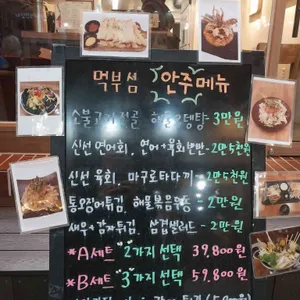 먹부심 안주메뉴
소불고기전골, 해물오뎅탕 - 3만원
신선 연어회, 연어+육회반반 - 2만5천원
신선 육회, 마구로타다끼 - 2만5천원
통오징어튀김, 해물볶음우동 - 2만원
새우+감자튀김, 샐러드 - 2만원
*A세트 2가지 선택 39,800원
*B세트 3가지 선택 59,800원